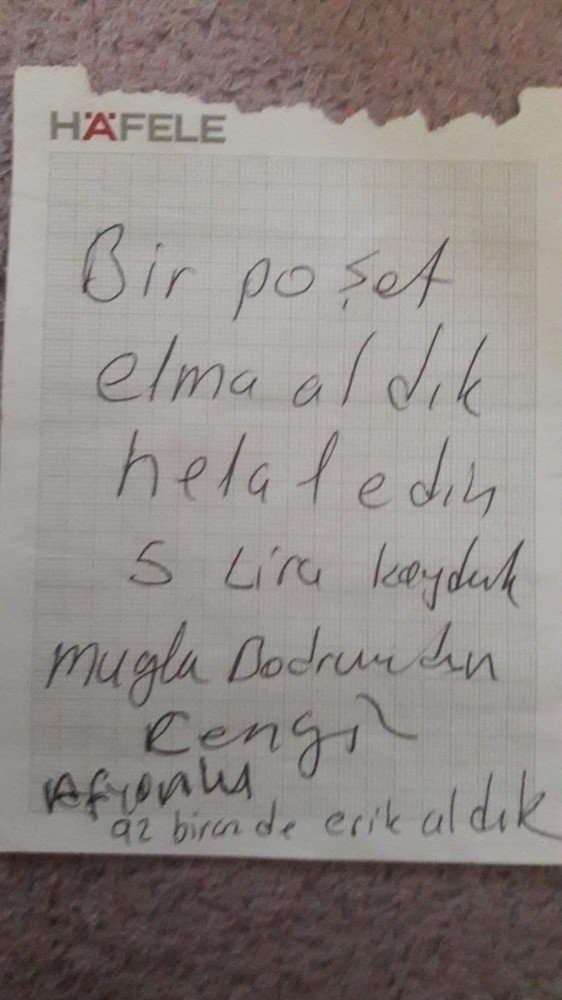 HÄFELE
Bir poşet
elma aldık
helal edin
5 Lira koyduk
mugla Bodrumdan
Afyonlu
az biran de erik aldık